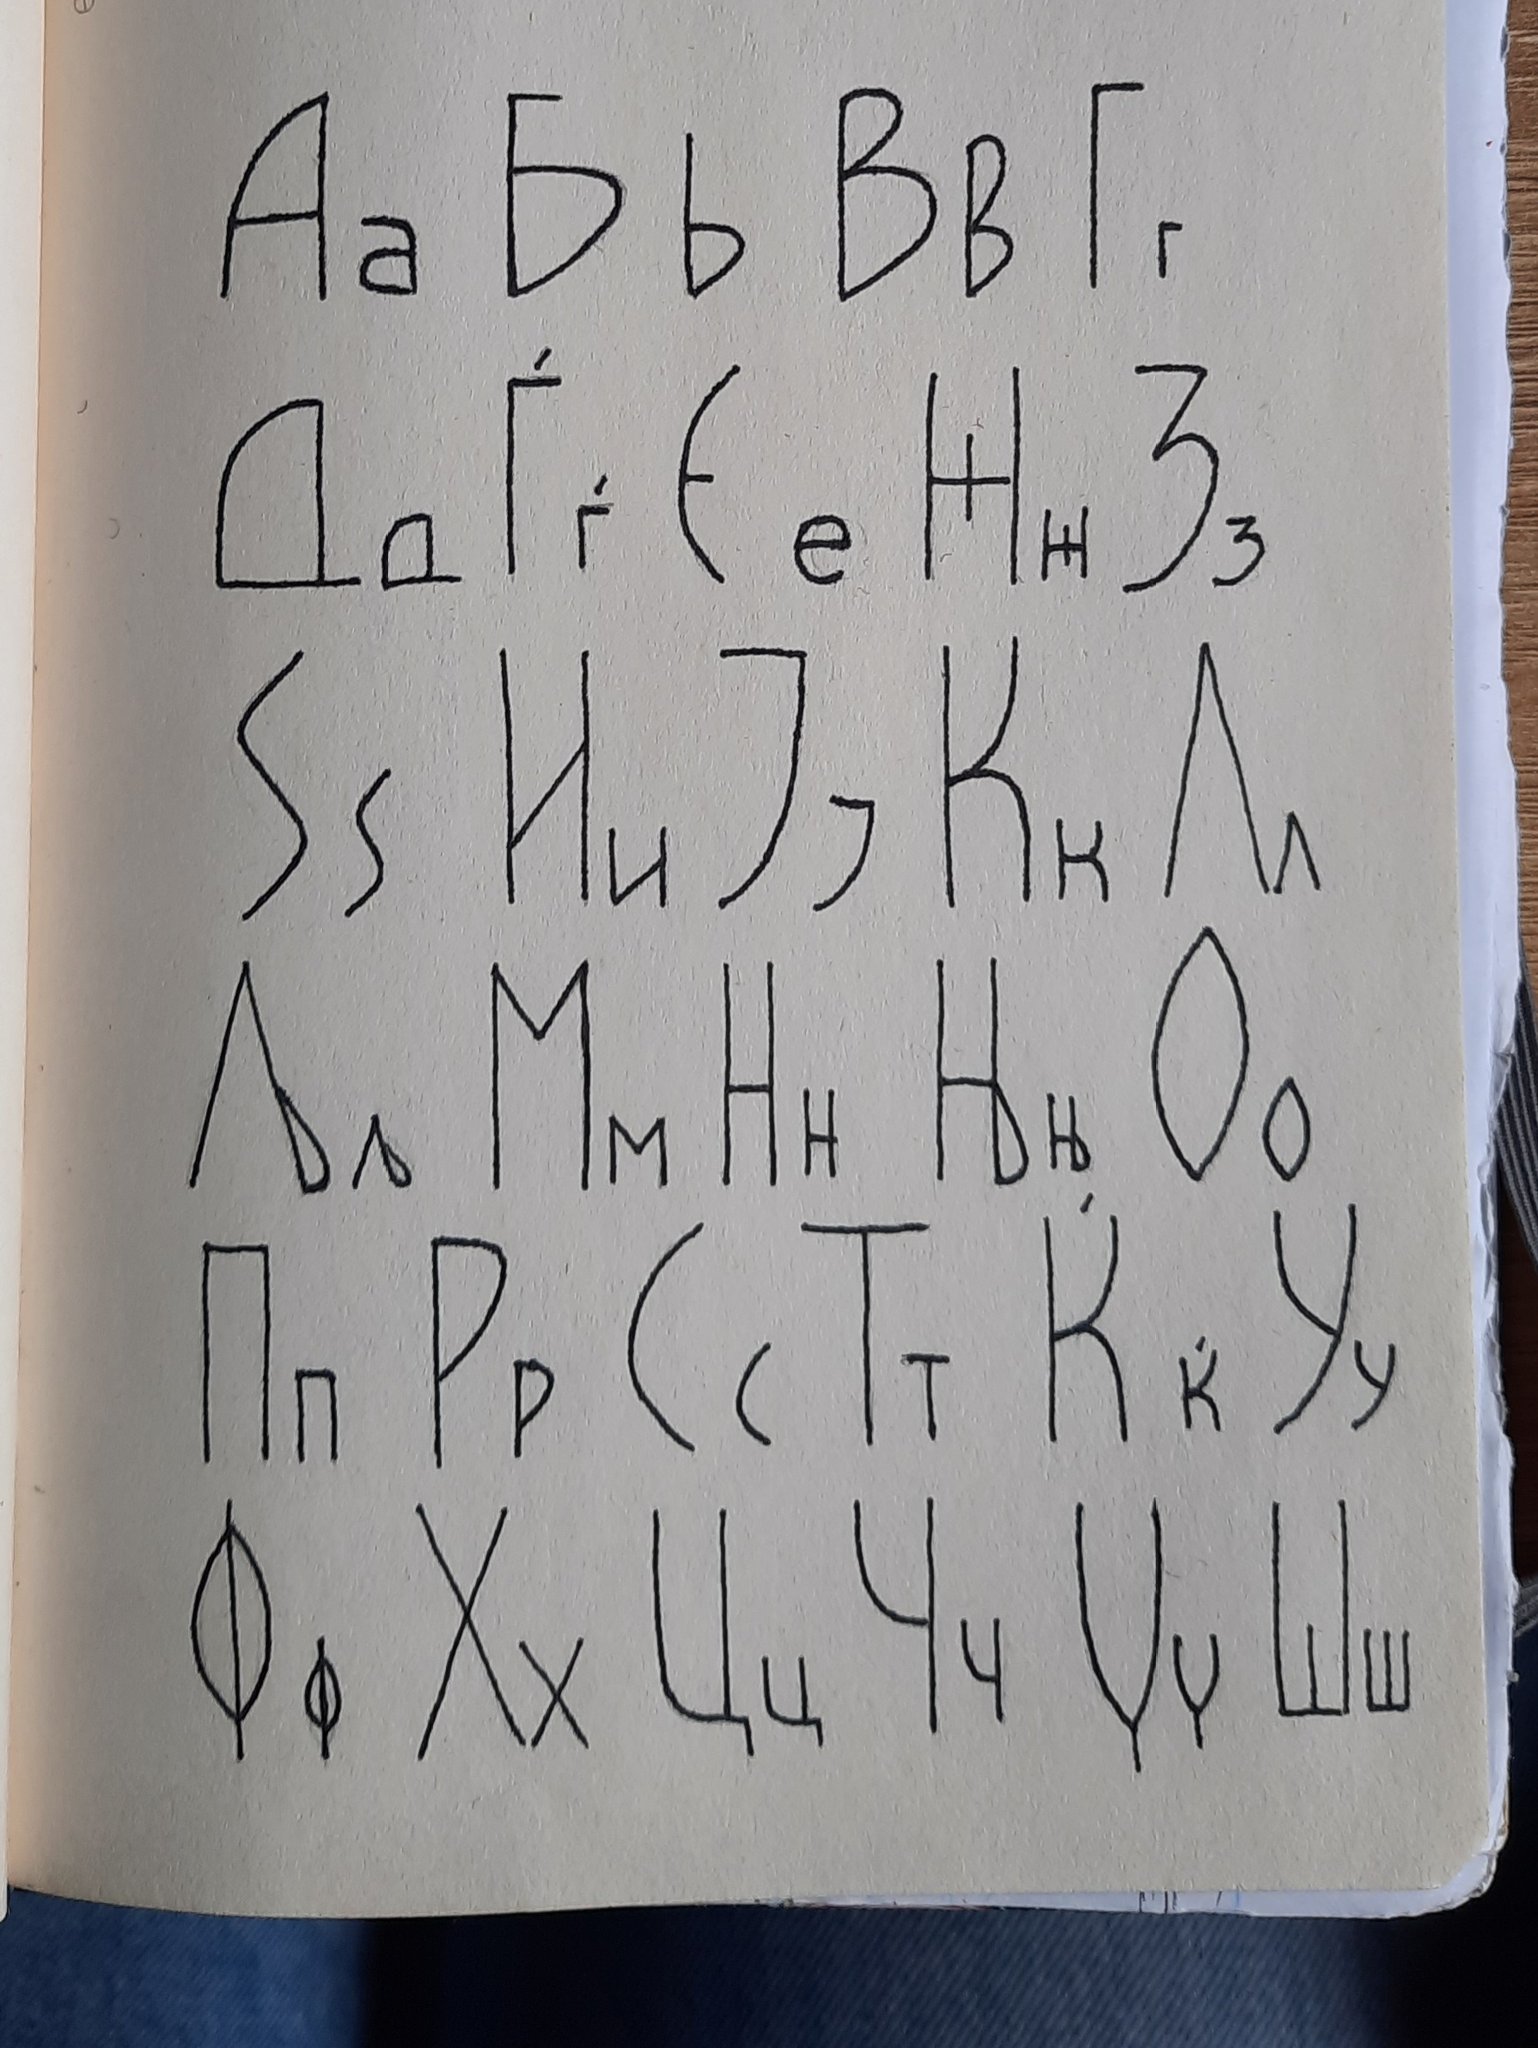 Аа Бб Вв Гг
Дд Ѓѓ Ее Жж Зз
Ѕѕ Ии Јј Кк Лл
Љљ Мм Нн Њњ Оо
Пп Рр Сс Тт Ќќ Уу
Фф Хх Цц Чч Џџ Шш